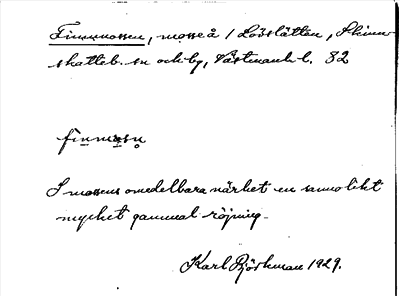 Finnmossen, mosse å / Lösslätten, Skinn-
skatteb. sn och by, Västmanl. l. 82
finmåsn
I mossens omedelbara närhet en sannolikt
mycket gammal röjning.
Karl Björkman 1929.